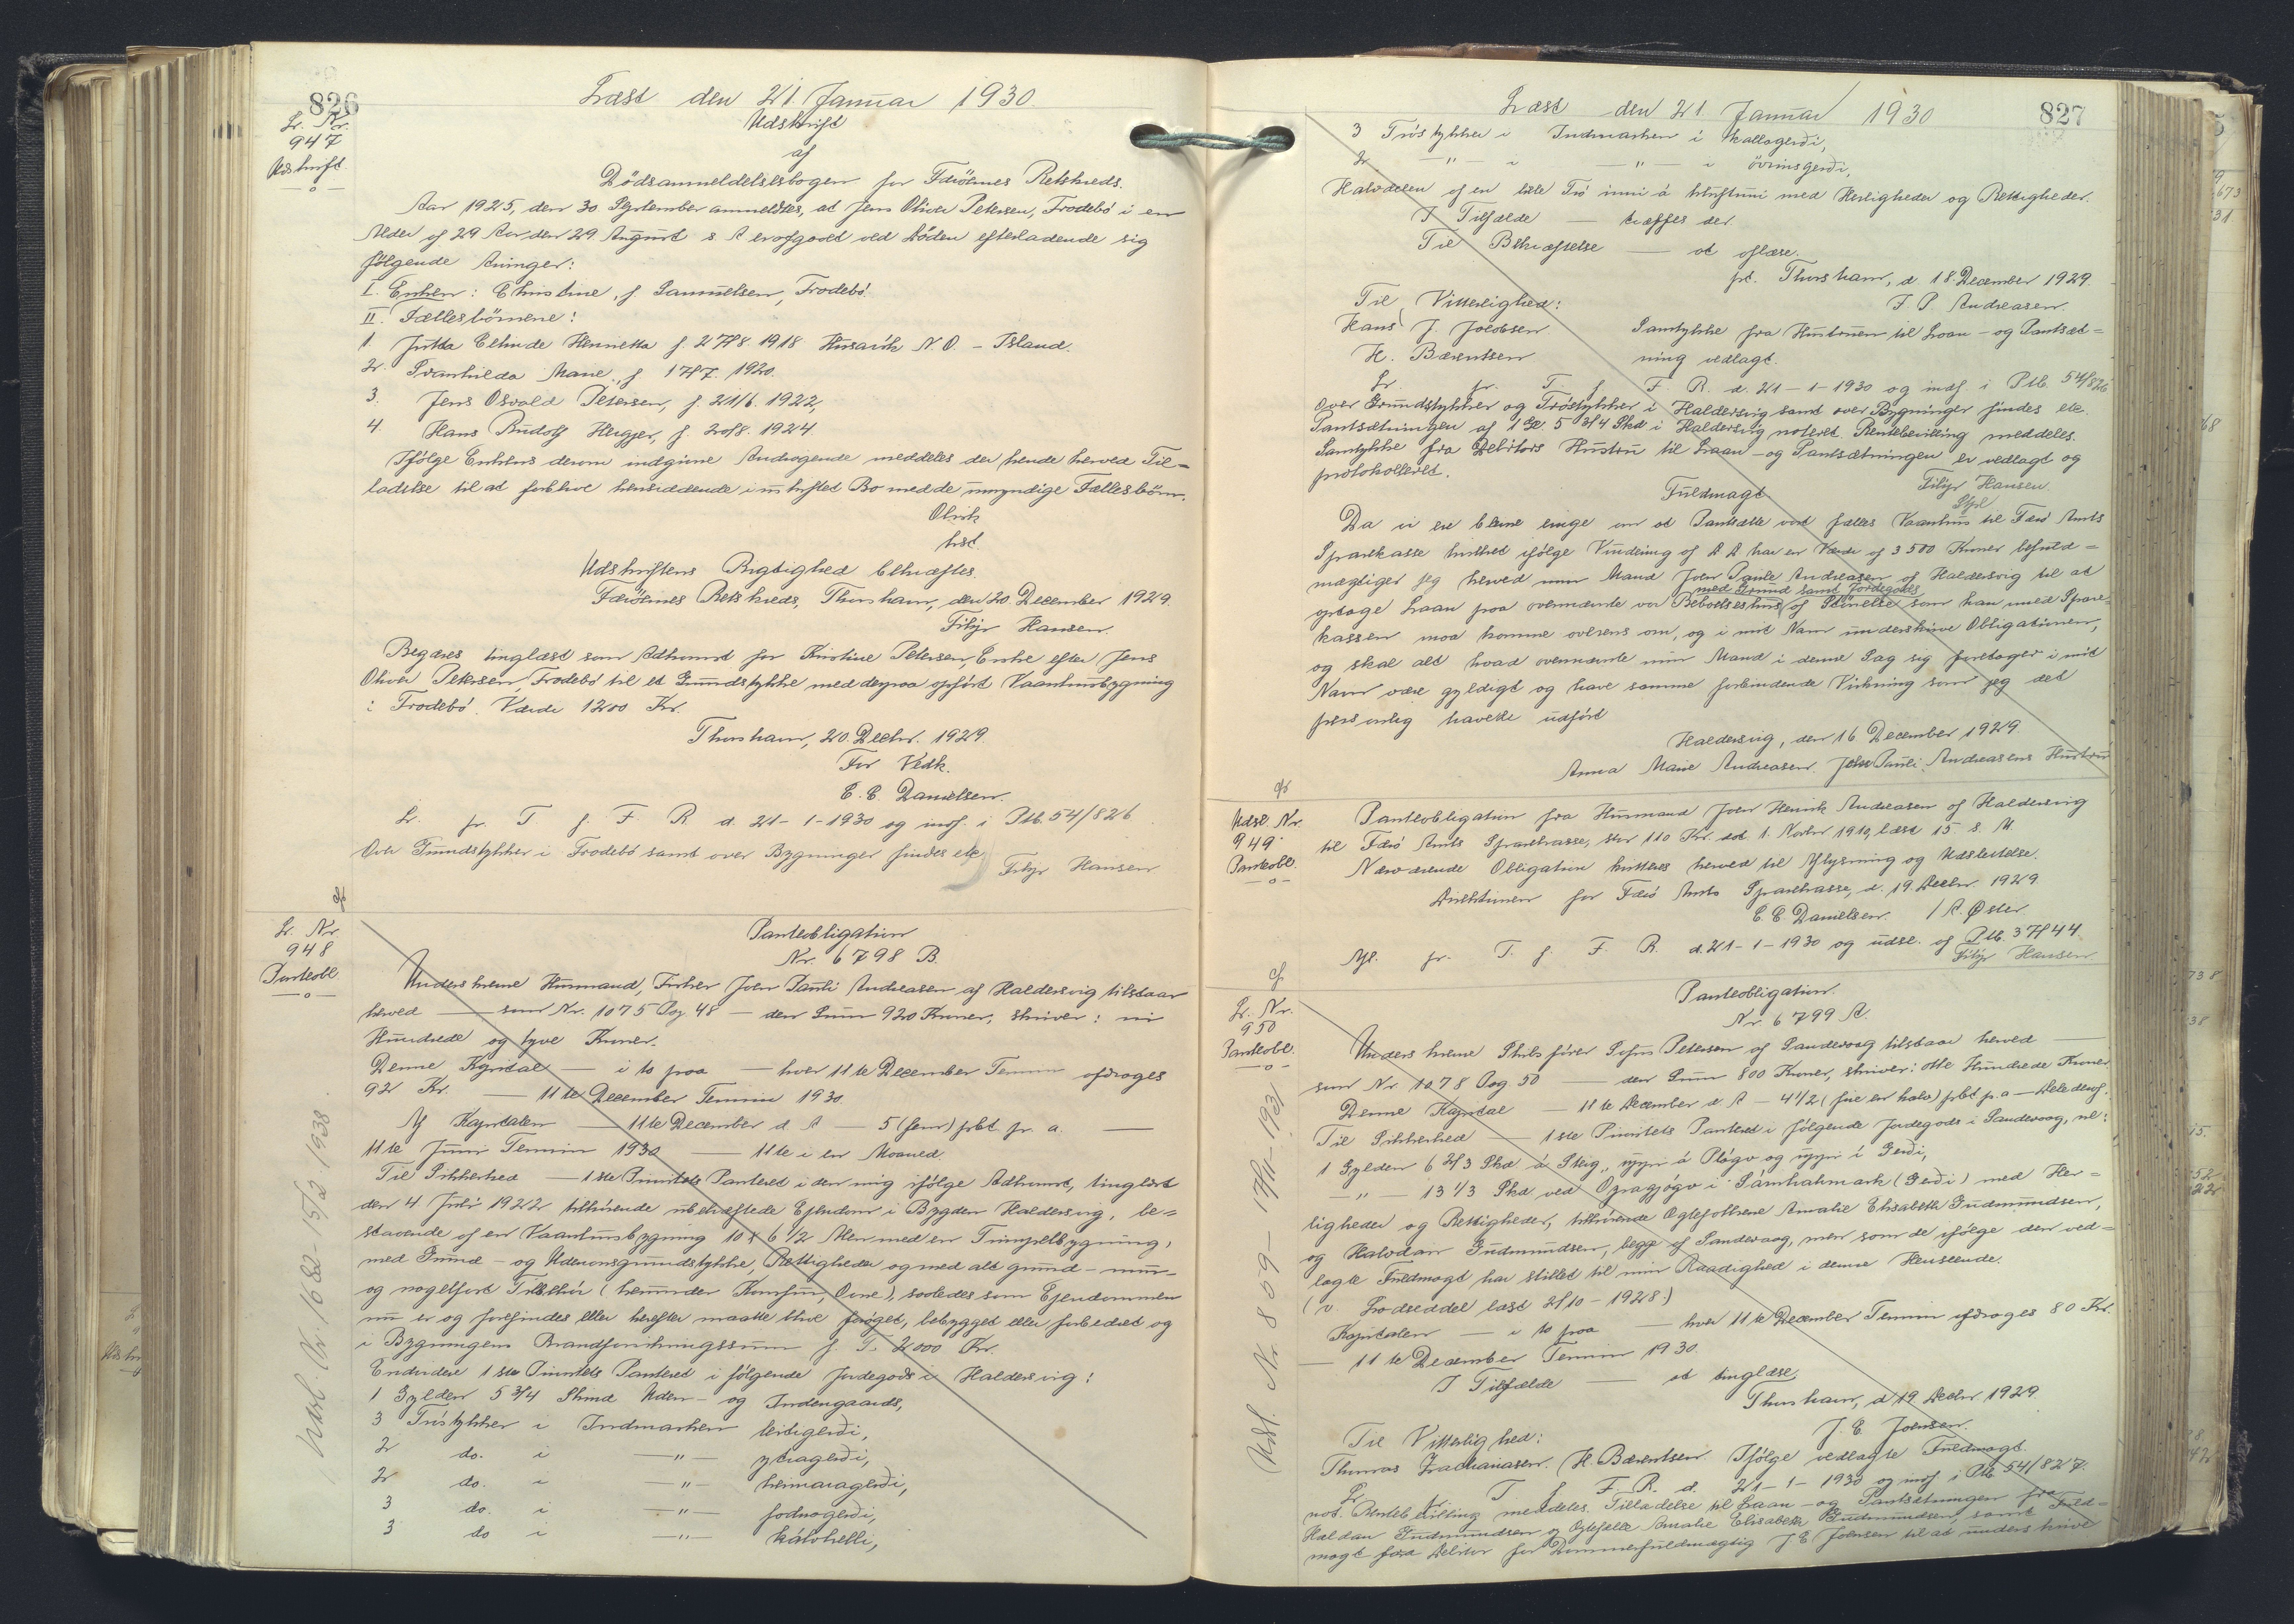 826
Læst den 21. Januar 1930
L. Nr.
947
Udskrift
Udskrift
af
Dödsanmeldelsesbogen for Færöernes Retskreds.
Aar 1925, den 30 September anmeldtes, at Jens Oliver Petersen, Frodebö i en
Alder af 29 Aar den 29 August s. A er afgaaet ved Döden efterladende sig
fölgende Arvinger:
I. Enken: Christine, f. Samuelsen, Frodebö.
II. Fællesbörnene:
1. Jutta Elinde Henrietta f. 27/8 1918 Husavik N. O. - Island.
2. Svanhilda Marie, f 17/7. 1920.
3. Jens Osvald Petersen, f. 21/6. 1922,
4. Hans Rudolf Heigjer, f. 20/8. 1924.
Ifölge Enkens derom indgivne Andragende meddeles der hende herved Til=
ladelse til at forblive hensiddende i uskiftet Bo med de umyndige Fællesbörn.
Olrik
kst.
Udskriftens Rigtighed bekræftes.
Færöernes Retskreds, Thorshavn, den 20. December 1929.
Filip Hansen.
Begæres tinglæst som Adkomst for Kristine Petersen, Enke efter Jens
Oliver Petersen Frodebö til et Grundstykke med derpaa opfört Vaaningsbygning
i Frodebö. Værdi 1200 Kr.
Thorshavn, 20. Decbr. 1929.
For Vedk.
E. E. Danielsen.
L. pr. T. f. F R d. 21-1-1930 og indf. i Ptb. 54/826
Over Grundstykker i Frodebö samt over Bygninger findes etc
Filip Hansen
L. Nr.
948
Panteobl.
Panteobligation
Nr. 6798 B.
Underskrevne Husmand, Fisker Joen Pauli Andreasen af Haldersvig tilstaar
herved — som Nr. 1075 Pag 48 — den Sum 920 Kroner, skriver: ni
Hundrede og tyve Kroner.
Denne Kapital — i to paa — hver 11te December Termin afdrages
92 Kr. — 11te December Termin 1930.
Af Kapitalen — 11te December d A — 5 (fem) pCt pr. a. —
11te Juni Termin 1930 — 11te i en Maaned.
Til Sikkerhed — 1ste Prioritets Panteret i den mig ifölge Adkomst, tinglæst
den 4 Juli 1922 tilhörende ubehæftede Ejendom i Bygden Haldersvig, be=
staaende af en Vaaningsbygning 10 x 6 1/2 Alen med en Tilbygning,
med Grund- og Udenomsgrundstykke, Rettigheder og med alt grund- mur-
og nagelfast Tilbehör (herunder Komfur, Ovne), saaledes som Ejendommen
nu er og forefindes eller herefter maatte blive foröget, bebygget eller forbedret og
i Bygningens Brandforsikringssum f. T. 2000 Kr.
Endvidere 1ste Prioritets Panteret i fölgende Jordegods i Haldersvig:
1 Gylden 5 3/4 Skind Uden- og Indengaards,
3 Tröstykker i Indmarken leitigerði,
2 do. i —"— ytragerði,
2 do. i —"— heimaragerði,
3 do. i —"— fodnagerði,
3 do i —"— kálvhelli,
Udsl. Nr. 1682-15/2. 1938.
827
Læst den 21. Januar 1930
3 Tröstykker i Indmarken i kallagerði,
2 —"— i —"— i övrinsgerði,
Halvdelen af en lille Trö inni á with Herligheder og Rettigheder.
I Tilfælde — træffes der.
Til Bekræftelse — at aflæse.
pt. Thorshavn, d 18 December 1929.
J. P. Andreasen.
Til Vitterlighed:
Hans J. Jacobsen
H. Bærentsen
Samtykke fra Hustruen til Laan- og Pantsæt=
ning vedlagt.
L. pr. T. f. F. R. d. 21-1-1930 og indf. i Ptb. 54/826
Over Grundstykker og Tröstykker i Haldersvig samt over Bygninger findes etc.
Pantsætningen af 1 Gl. 5 3/4 Skd i Haldersvig noteret. Rentebevilling meddeles.
Samtykke fra Debitors Hustru til Laan- og Pantsætningen er vedlagt og
protokolleret.
Filip Hansen.
Fuldmagt
Da vi ere blevne enige om at Pantsætte vort fælles Vaanhus til Færö Amts
Sparekasse hvilket ifölge Vurdering af d A har en Værdi af 3500 Kroner befuld=
mægtiger jeg herved min Mand Joen Pauli Andreasen af Haldersvig til at
med Grund samt Jordegods
optage Laan paa ovennævnte vor Beboelseshus af Störrelse som han med Spare=
kassen maa komme overens om, og i mit Navn underskrive Obligationen,
og skal alt hvad ovennævnte min Mand i denne Sag sig foretager i mit
Navn være gyldigt og have samme forbindende Virkning som jeg det
personlig havde udfört
Haldersvig, den 16 December 1929.
Anna Marie Andreasen. Joen Pauli Andreasens Hustru
Udsl. Nr.
949
Panteobl.
Panteobligation fra Husmand Joen Henrik Andreasen af Haldersvig
til Færö Amts Sparekasse, stor 110 Kr. dat 1. Novbr 1910, læst 15 s. M.
Nærværende Obligation kvitteres herved til Aflysning og Udslettelse.
Direktionen for Færö Amts Sparekasse, d. 19 Decbr. 1929.
E. E. Danielsen. / A. Øster
Afl. pr. T. f. F. R. d. 21-1-1930 og udsl. af Ptb. 37/44.
Filip Hansen
L. Nr.
950
Panteobl.
Panteobligation.
Nr. 6799 A.
Underskrevne Skibsförer Sofus Petersen af Sandevaag tilstaar herved —
som Nr. 1078 Pag 50 — den Sum 800 Kroner, skriver: otte Hundrede Kroner
Denne Kapital — 11te December d A — 4 1/2 (fire en halv) pCt p.a —
Til Sikkerhed — 1ste Prioritets Panteret i fölgende Jordegods i Sandevaag, nl:
1 Gylden 6 2/3 Skd á Steig, uppi á Plógv og uppi í Gerði,
—"— 13 1/3 Skd ved Opragjógv i (Gerði) med Her=
ligheder og Rettigheder, tilhörende Ægtefolkene Amalie Elisabeth Gudmundsen,
og Halvdan Gudmundsen, begge af Sandevaag, men som de ifölge den ved=
lagte Fuldmagt har stillet til min Raadighed i denne Henseende.
(v. Lodseddel læst 2/10-1928.)
Kapitalen — i to paa — hver 11te December Termin afdrages 80 Kr.
— 11te December Termin 1930.
I Tilfælde — at tinglæse,
Thorshavn, d 19 Decbr. 1929.
J. E. Joensen.
Til Vitterlighed:
Thomas Zachariasen. H. Bærentsen. Ifölge vedlagte Fuldmagt.
L. pr. T. f. F. R. d. 21-1-1930 og indf. i Ptb 54/827.
not. Rentebevilling meddeles. Tilladelse til Laan- og Pantsætningen fra
Haldan Gudmundsen og Ægtefælle Amalie Elisabeth Gudmundsen, samt Fuld=
magt fra Debitor for Dommerfuldmægtig J. E Joensen til at underskrive
Udsl. Nr 809-17/11-1931